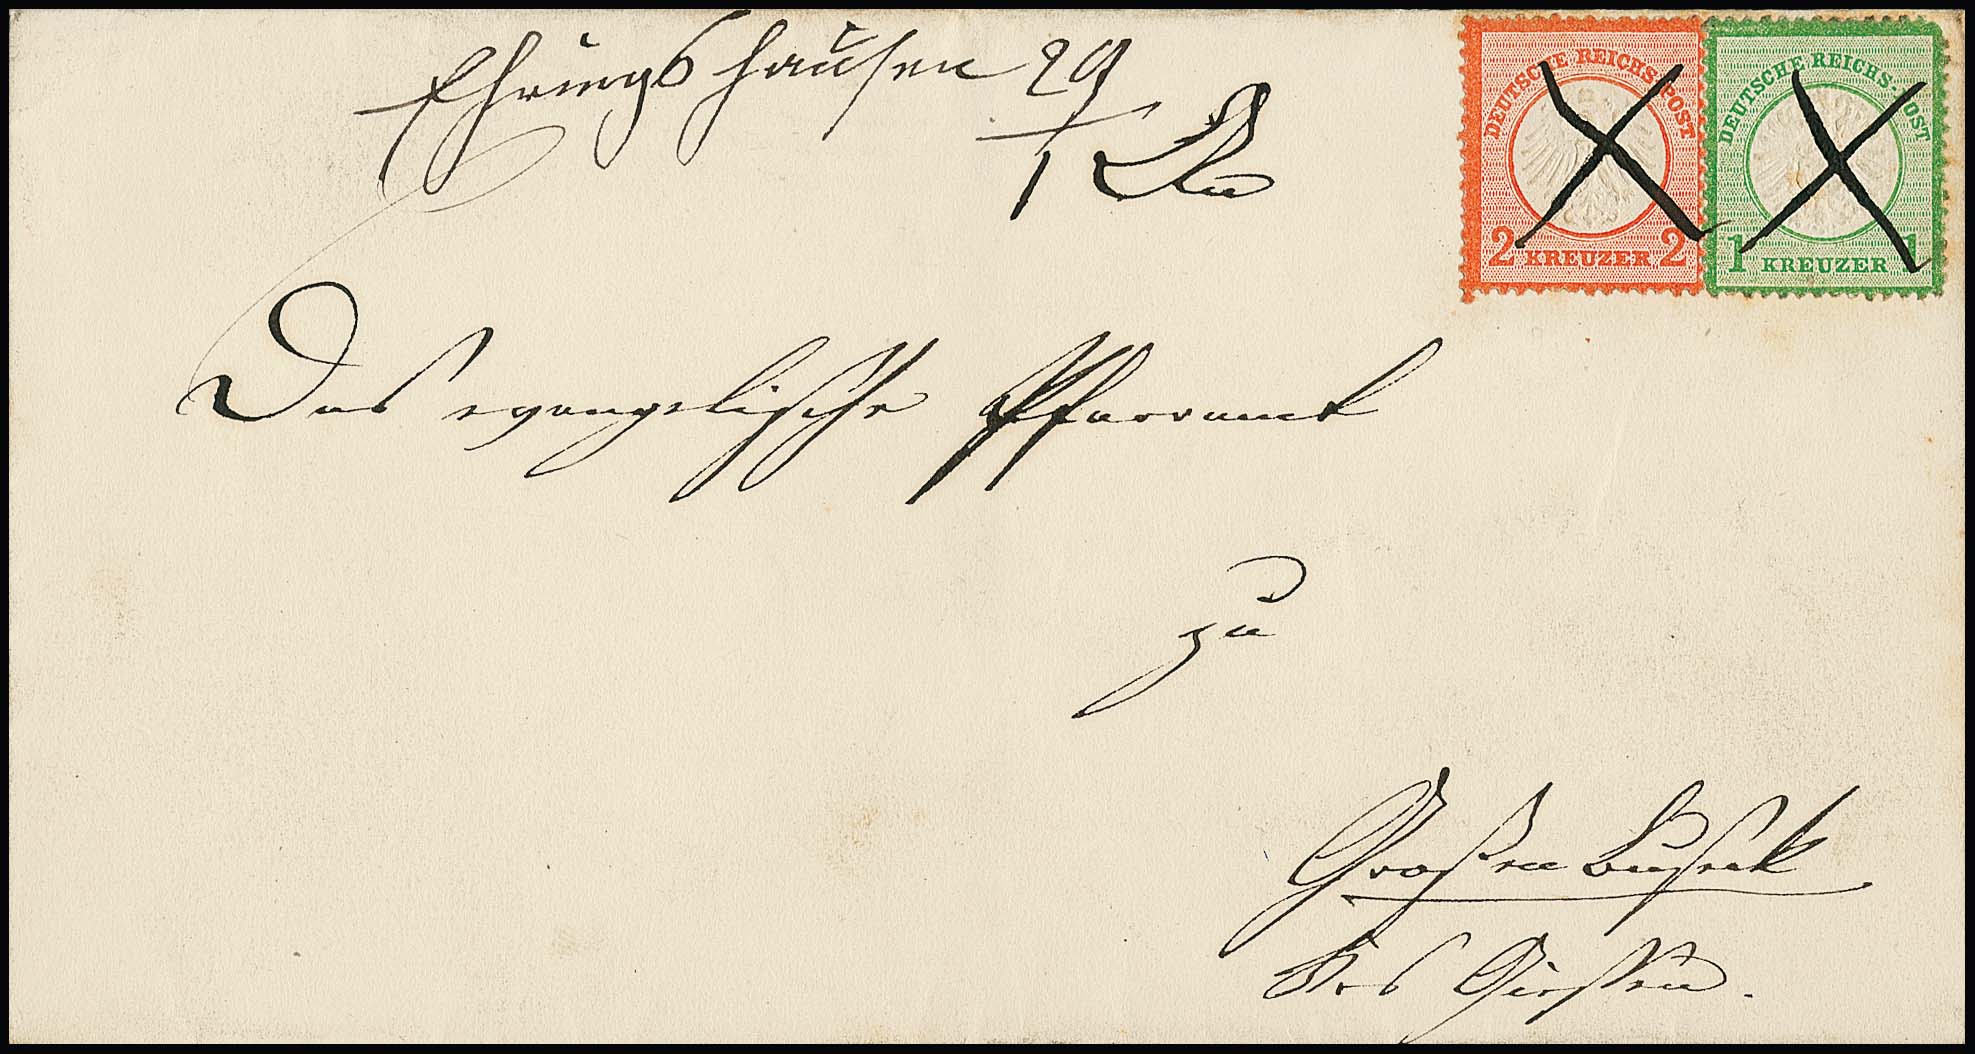 Ehringshausen 29
1
DEUTSCHE REICHS-POST
2 KREUZER 2
DEUTSCHE REICHS-POST
1 KREUZER 1
Das evangelische Pfarramt
zu
Großen Buseck
Gießen.